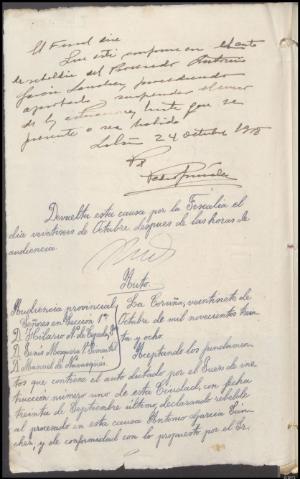 El Fiscal dice
Que está conforme en el auto
de rebeldía del Procesado Antonio
García Sánchez, procediendo
aprobarlo suspender el curso
de las actuaciones, hasta que se
presente o sea habido
24 octubre 1938
Devuelta esta causa por la Fiscalía el
día veintiseis de Octubre despues de las horas de
audiencia.
Auto.
Audiencia provincial
Señores en Sección 1ª
D. Hilario Nº de Cepeda, Pte
D. Senio Mosquera
D. Manuel de
La Coruña, veintisiete de
Octubre de mil novecientos trein-
ta y ocho.
Aceptando los fundamen-
tos que contiene el auto dictado por el Juez de ins-
trucción número uno de esta Ciudad, con fecha
treinta de Septiembre último, declarando rebelde
al procesado en esta causa Antonio García Sán-
chez, y de conformidad con lo propuesto por el Sr.